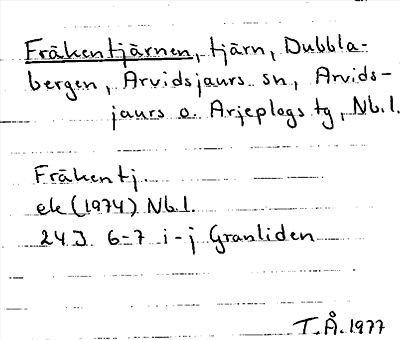 Fräkentjärnen, tjärn, Dubbla-
bergen, Arvidsjaurs sn, Arvids-
jaurs o. Arjeplogs tg, Nb.l.
Fräkentj.
ek (1974) Nb.l.
24 J 6-7 i-j Granliden
T.Å. 1977